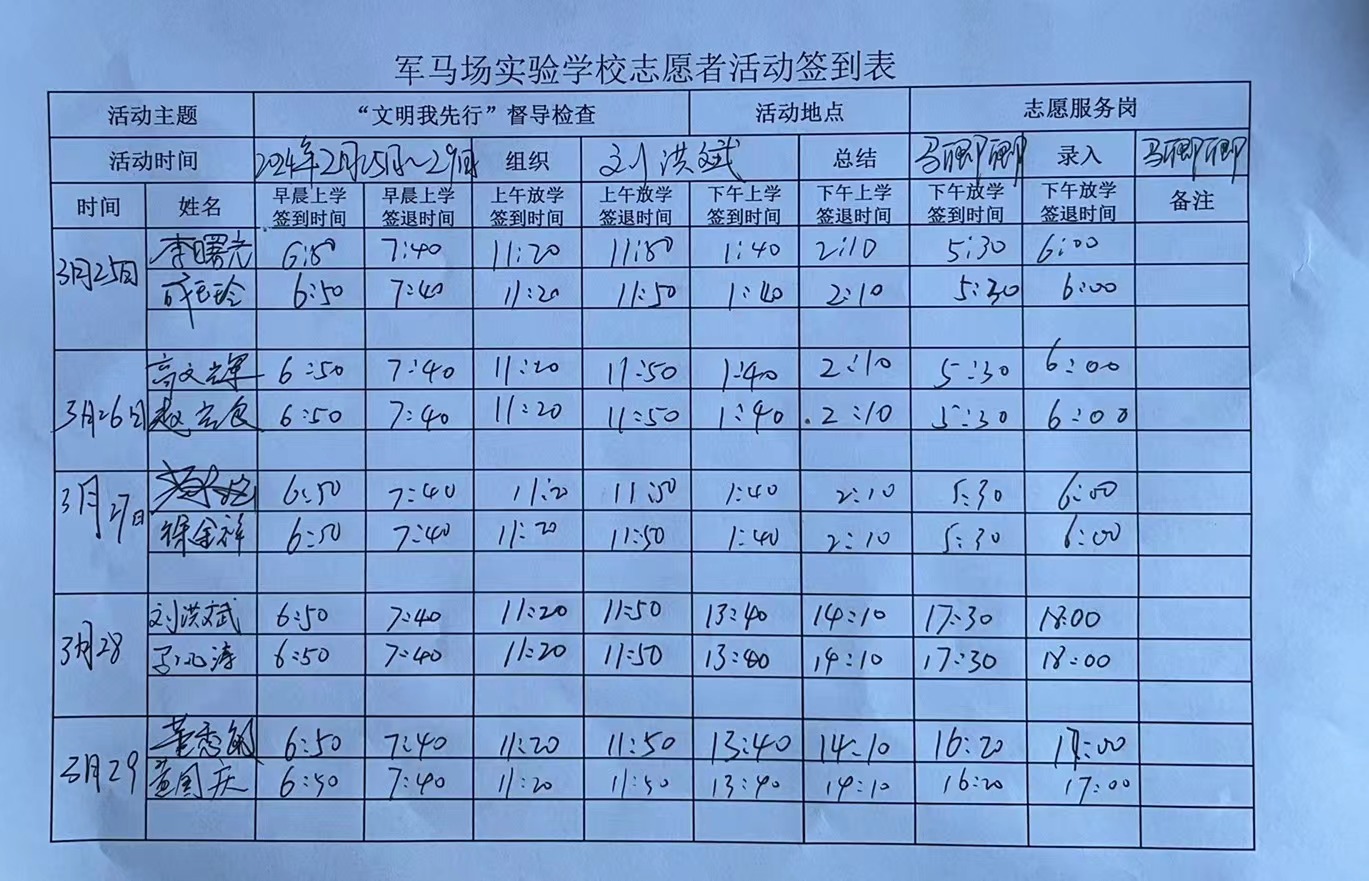 军马场实验学校志愿者活动签到表
活动主题 “文明我先行”督导检查 活动地点 志愿服务岗
活动时间 2024年2月25日~29日 组织 刘洪斌 总结 马卿卿 录入 马卿卿
时间 姓名 早晨上学签到时间 早晨上学签退时间 上午放学签到时间 上午放学签退时间 下午上学签到时间 下午上学签退时间 下午放学签到时间 下午放学签退时间 备注
3月25日 李曙光 6:50 7:40 11:20 11:50 1:40 2:10 5:30 6:00
6:50 7:40 11:20 11:50 1:40 2:10 5:30 6:00
3月26日 高文军 6:50 7:40 11:20 11:50 1:40 2:10 5:30 6:00
6:50 7:40 11:20 11:50 1:40 2:10 5:30 6:00
3月27日 6:50 7:40 11:20 11:50 1:40 2:10 5:30 6:00
徐金祥 6:50 7:40 11:20 11:50 1:40 2:10 5:30 6:00
3月28 刘洪斌 6:50 7:40 11:20 11:50 13:40 14:10 17:30 18:00
6:50 7:40 11:20 11:50 13:40 14:10 17:30 18:00
3月29 董秀敏 6:50 7:40 11:20 11:50 13:40 14:10 16:20 17:00
董国庆 6:50 7:40 11:20 11:50 13:40 14:10 16:20 17:00